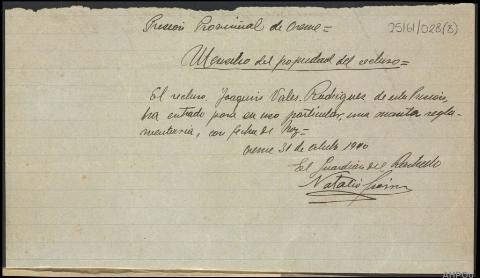 25161/028(8)
Prisión Provincial de Orense=
del propiedad del recluso=
El recluso, Joaquin Vales Rodriguez de esta Prisión,
ha entrado para su uso particular, una manta regla-
mentaria, con fecha de hoy=
Orense 31 de Octubre 1940
El Guardian del Rastrillo
Natalio
AHPOU